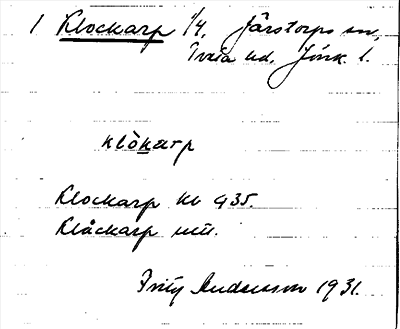 1 Klockarp 1/4, Järstorps sn,
Tveta hd, Jönk. l.
klòkarp
Klockarp Kb 935.
Klåckarp mtl.
Fritz Andersson 1931.